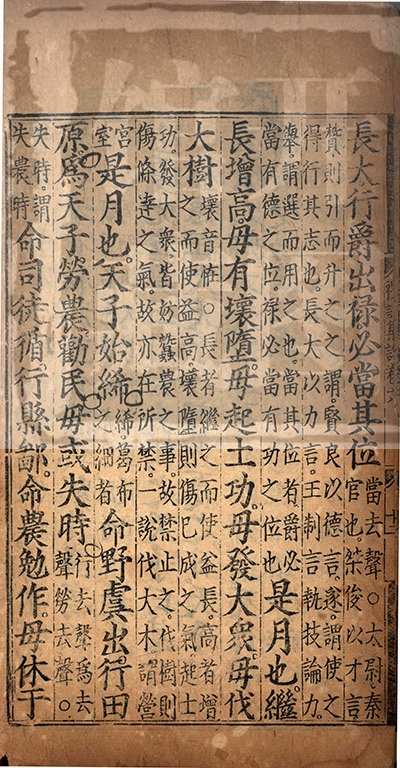 長大行爵出祿必當其位當去聲○太尉秦
官也桀俊以才言
贊則引而升之之謂賢良以德言遂謂使之
得行其志也長大以力言王制言執技論力
舉謂選而用之也當其位者爵必
當有德之位祿必當有功之位也
是月也繼
長增高毋有壞墮毋起土功毋發大衆毋伐
大樹
壞音怪○長者繼之而使益長高者增
之而使益高壞墮則傷已成之氣起土
功發大衆皆妨蠶農之事故禁止之伐樹則
傷條達之氣故亦在所禁一說伐大木謂營
宮
室
是月也天子始絺
絺葛布
之細者
命野虞出行田
原爲天子勞農勸民毋或失時
行去聲爲去
聲勞去聲○
失時謂
失農時
命司徒循行縣鄙命農勉作毋休于